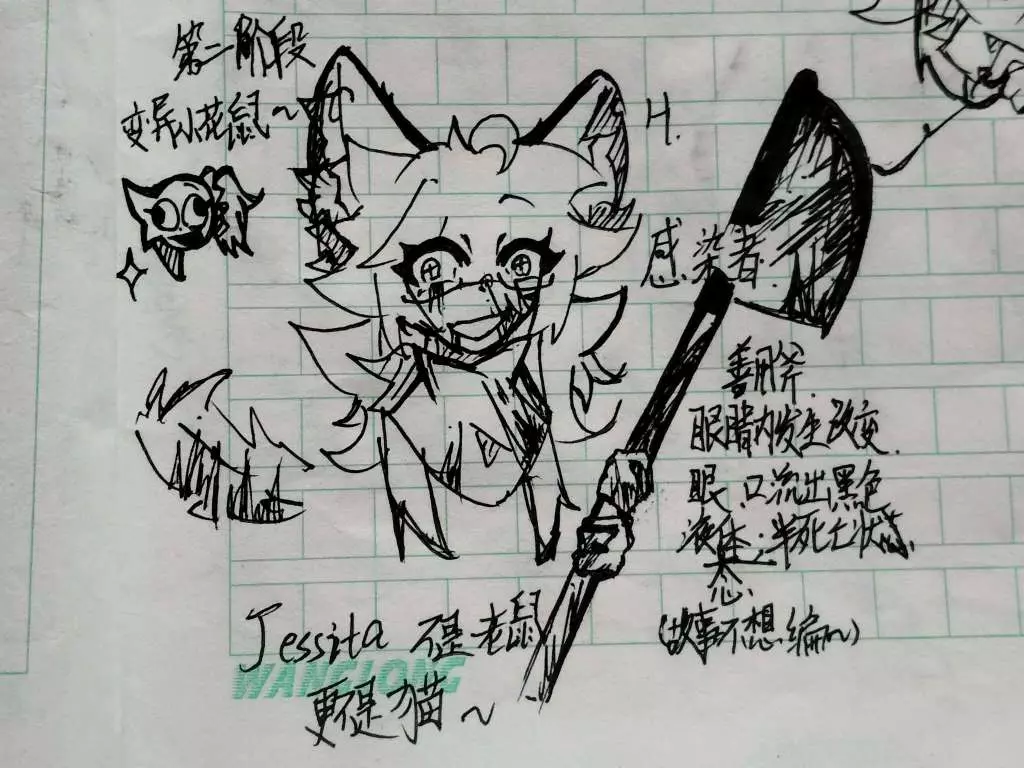 第二阶段
变异小花鼠~
H.
感染者.
善用斧.
眼睛内发生改变.
眼、口流出黑色
液体;半死亡状
态.
(故事不想编~)
Jessita 不是老鼠
更不是猫~
WANGLONG